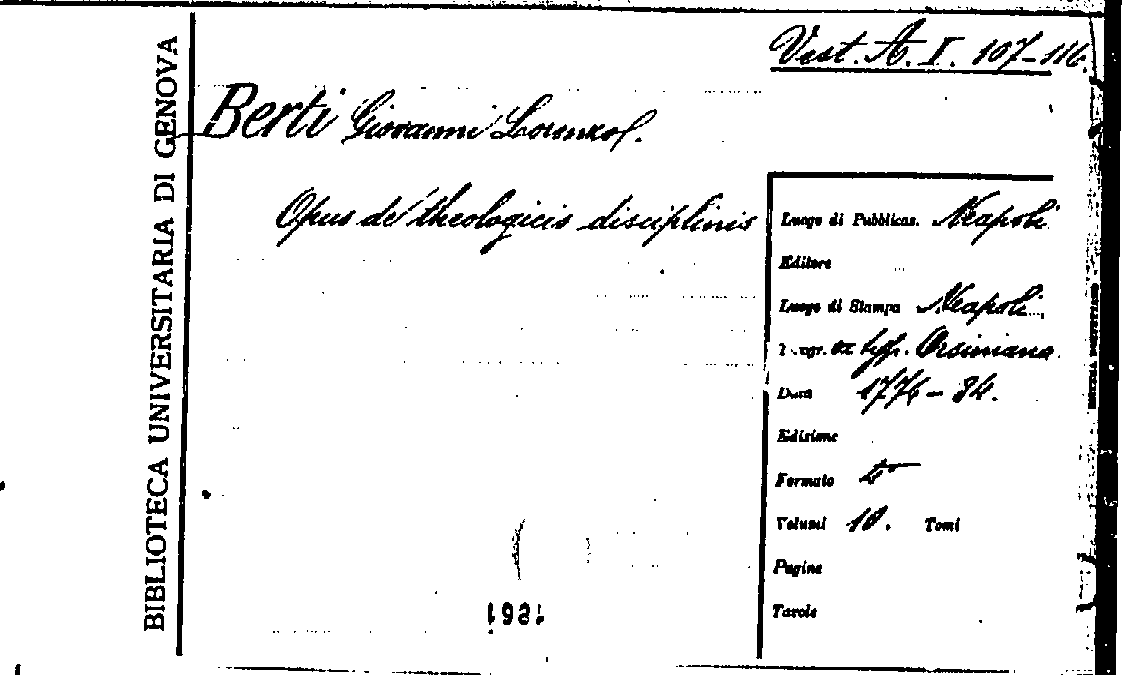 BIBLIOTECA UNIVERSITARIA DI GENOVA
Vest. A. I. 107-116.
Berti Giovanni Lorenzo.
Opus de theologicis disciplinis
Luogo di Pubblicaz. Neapoli
Editore
Luogo di Stampa Neapoli
ex typ. Orsiniana.
Data 1776-84.
Edizione
Formato 4°
Volumi 10. Tomi
Pagine
Tavole